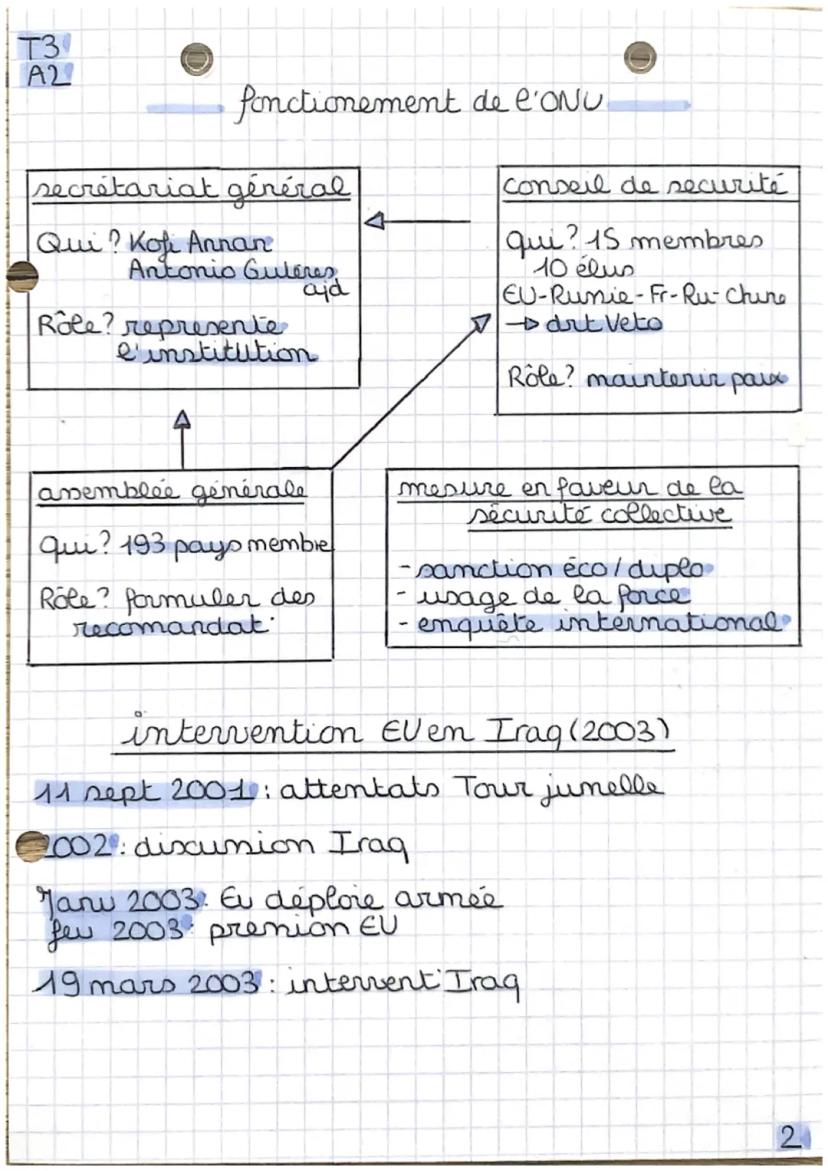 T3
A2
fonctionement de l'ONU
secrétariat général
Qui? Kofi Annan
Antonio Guteres
ajd
Rôle? represente
l'institution
conseil de securité
qui? 15 membres
10 élus
EU-Rumie-Fr-Ru-Chine
→ drt Veto
Rôle? maintenir paix
assemblée générale
qui? 193 pays membre
Rôle? formuler des
recomandat°
mesure en faveur de la
sécurité collective
- sanction éco/diplo
- usage de la force
- enquête international
intervention EU en Iraq (2003)
11 sept 2001 : attentats Tour jumelle
2002 : discussion Iraq
Janv 2003 : Eu déploie armée
fev 2003 : pression EU
19 mars 2003 : intervent° Iraq
2